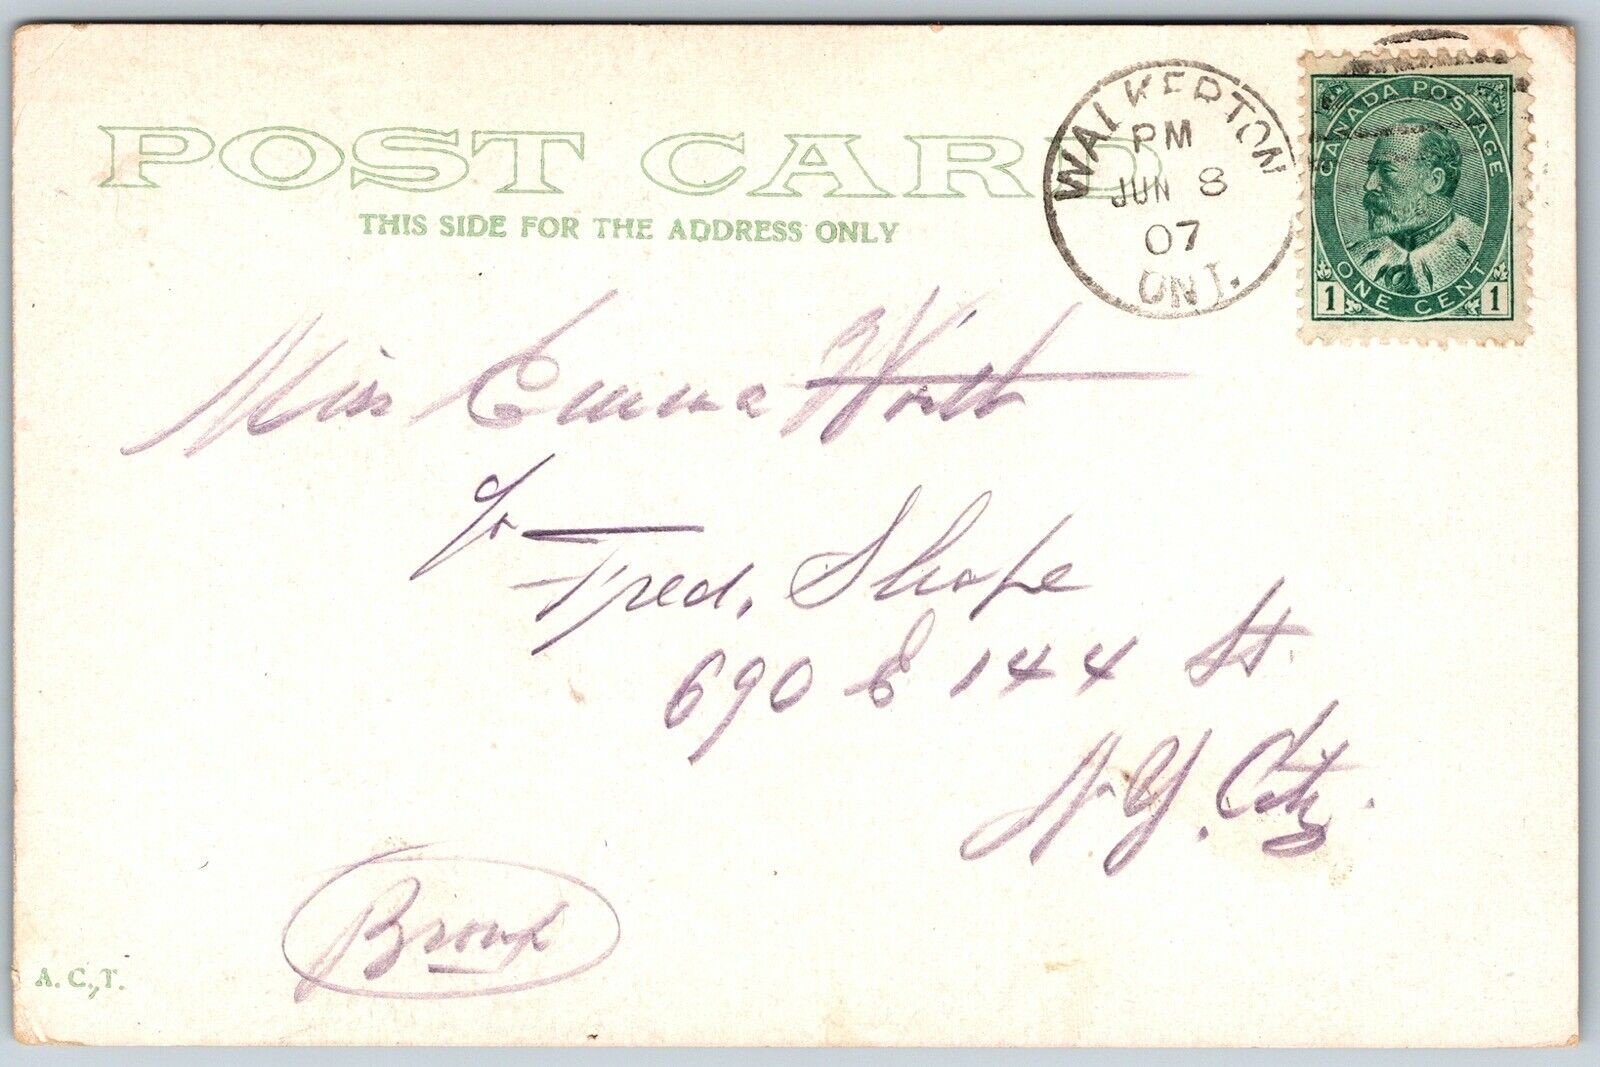 POST CARD
THIS SIDE FOR THE ADDRESS ONLY
WALKERTON
PM
JUN 8
07
ONT.
CANADA POSTAGE
ONE CENT
1 1
Miss Emma
c/o
Fred, Shope
690 E 144 St.
N.Y. City.
Bronx
A. C., T.